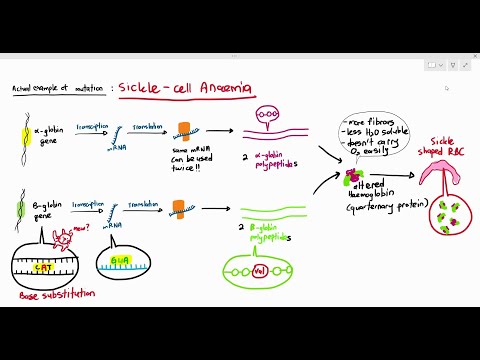 Actual example of mutation : Sickle-cell Anaemia
α-globin
gene
Transcription
mRNA
Translation
same mRNA
can be used
twice!!
2 α-globin
polypeptides
- more fibrous
- less H2O soluble
- doesn't carry
O2 easily
altered
Haemoglobin
(quarternary protein)
Sickle
shaped RBC
β-globin
gene
Transcription
mRNA
Translation
2 β-globin
polypeptides
new?
CAT
GUA
Val
Base substitution